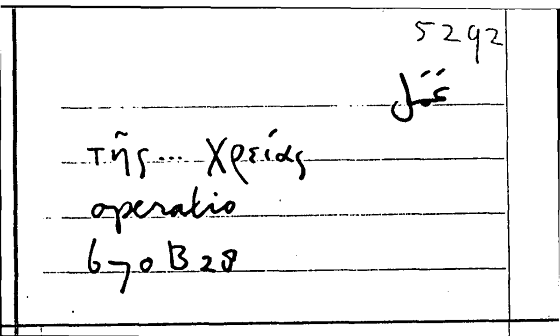 5292
عَمَل
τῆς ... χρείας
operatio
670 B 28